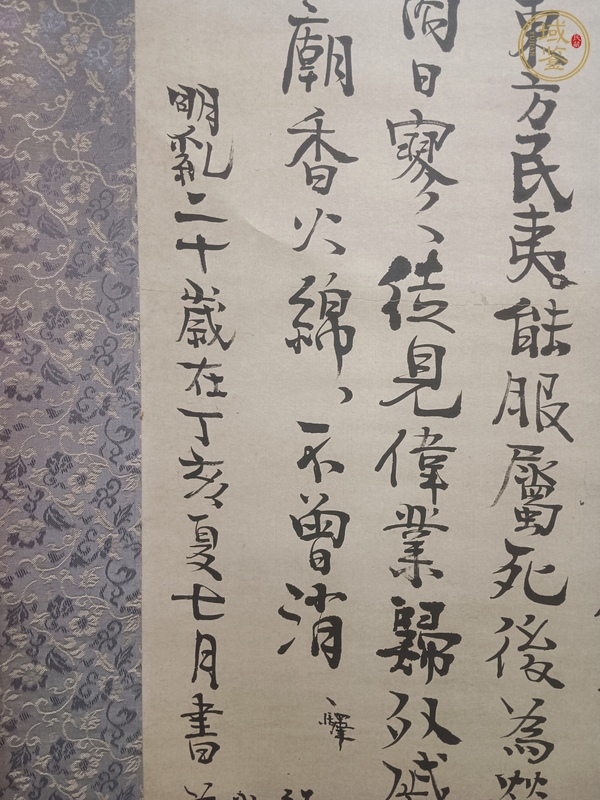 東方民夷能服屬死後為
日寥々、徒見偉業歸
廟香火綿、不曾消
明乿二十歲在丁亥夏七月書